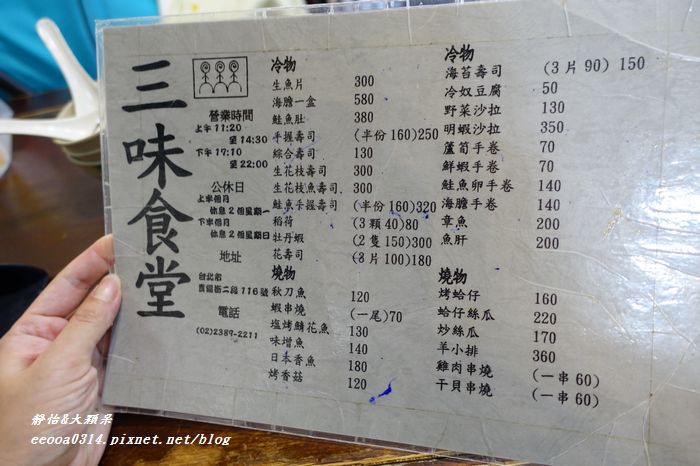 三味食堂
營業時間
上午 11:20
至 14:30
下午 17:10
至 22:00
公休日
上半個月
休息 2 個星期一
下半個月
休息 2 個星期日
地址
台北市
貴陽街二段 116 號
電話
(02)2389-2211
冷物
生魚片 300
海膽一盒 580
鮭魚肚 380
手握壽司 (半份 160)250
綜合壽司 130
生花枝壽司 300
生花枝魚壽司 300
鮭魚手握壽司 (半份 160)320
稻荷 (3 顆 40)80
牡丹蝦 (2 隻 150)300
花壽司 (3 片 100)180
燒物
秋刀魚 120
蝦串燒 (一尾)70
塩烤鯖花魚 130
味增魚 140
日本香魚 180
烤香菇 120
冷物
海苔壽司 (3 片 90) 150
冷奴豆腐 50
野菜沙拉 130
明蝦沙拉 350
蘆筍手卷 70
鮮蝦手卷 70
鮭魚卵手卷 140
海膽手卷 140
章魚 200
魚肝 200
燒物
烤蛤仔 160
蛤仔絲瓜 220
炒絲瓜 170
羊小排 360
雞肉串燒 (一串 60)
干貝串燒 (一串 60)
靜怡&大顆呆
eeooa0314.pixnet.net/blog